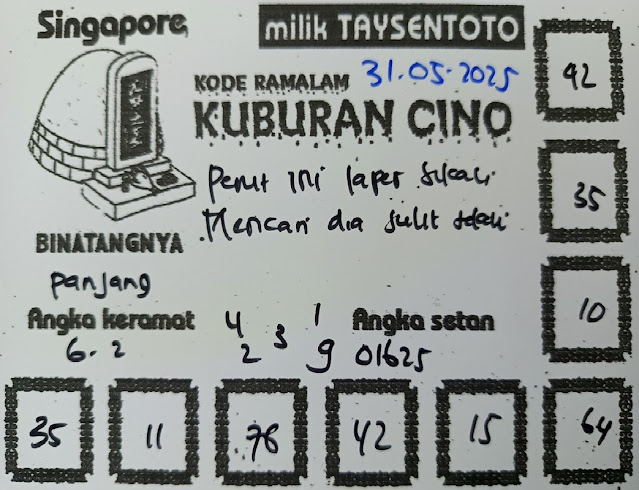 Singapore
milik TAYSENTOTO
KODE RAMALAM 31.05.2025
KUBURAN CINO
Perut ini laper sekali
Mencari dia sulit sekali
BINATANGNYA
panjang
Angka keramat
6.2
4 3 1
2 9
Angka setan
01625
92
35
10
35
11
76
42
15
64